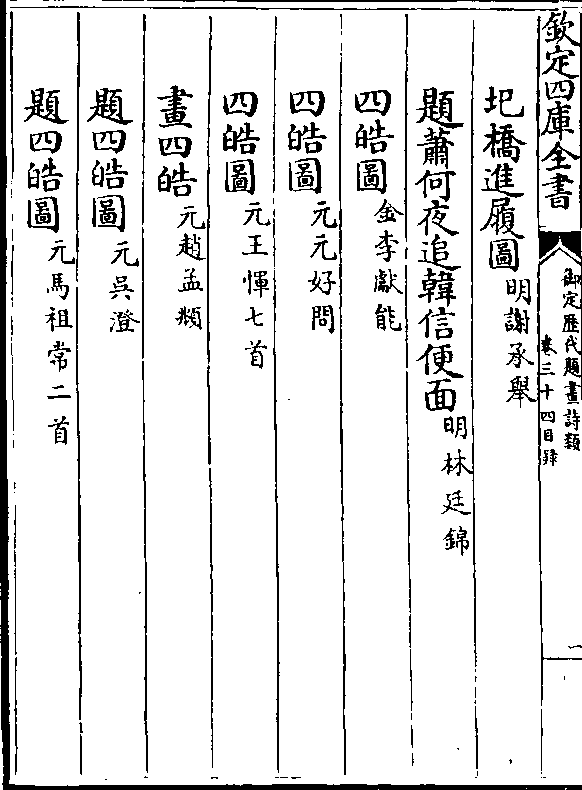 欽定四庫全書
御定歴代題畫詩類
卷三十四目錄
一
圯橋進履圖 明謝承舉
題蕭何夜追韓信便面 明林廷錦
四皓圖 金李獻能
四皓圖 元元好問
四皓圖 元王惲七首
畫四皓 元趙孟頫
題四皓圖 元吳澄
題四皓圖 元馬祖常二首